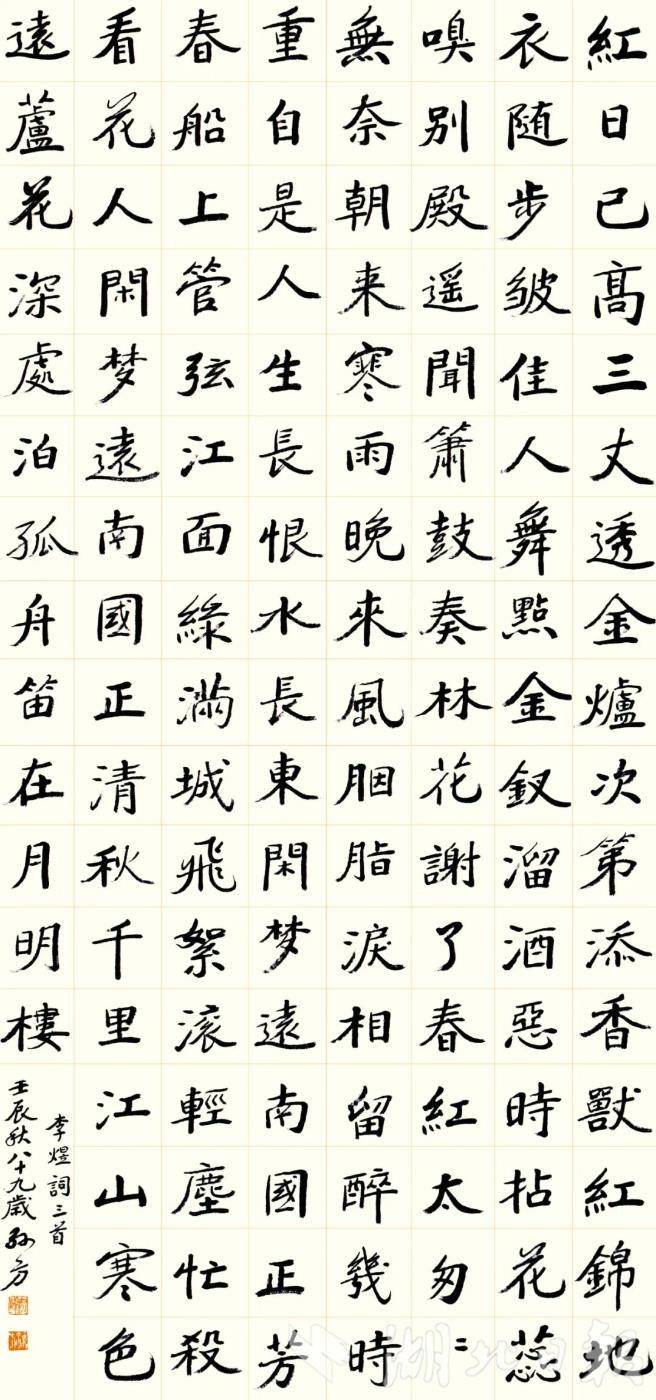 紅日已高三丈透金爐次第添香獸紅錦地
衣随步皱佳人舞點金釵溜酒惡時拈花蕊
嗅别殿遥聞簫鼓奏林花謝了春紅太匆〻
無奈朝来寒雨晚來風胭脂淚相留醉幾時
重自是人生長恨水長東閑梦遠南國正芳
春船上管弦江面緑滿城飛絮滚輕塵忙殺
看花人閑梦遠南國正清秋千里江山寒色
遠蘆花深處泊孤舟笛在月明樓
李煜詞三首
壬辰秋八十九歲孙方
湖北日報